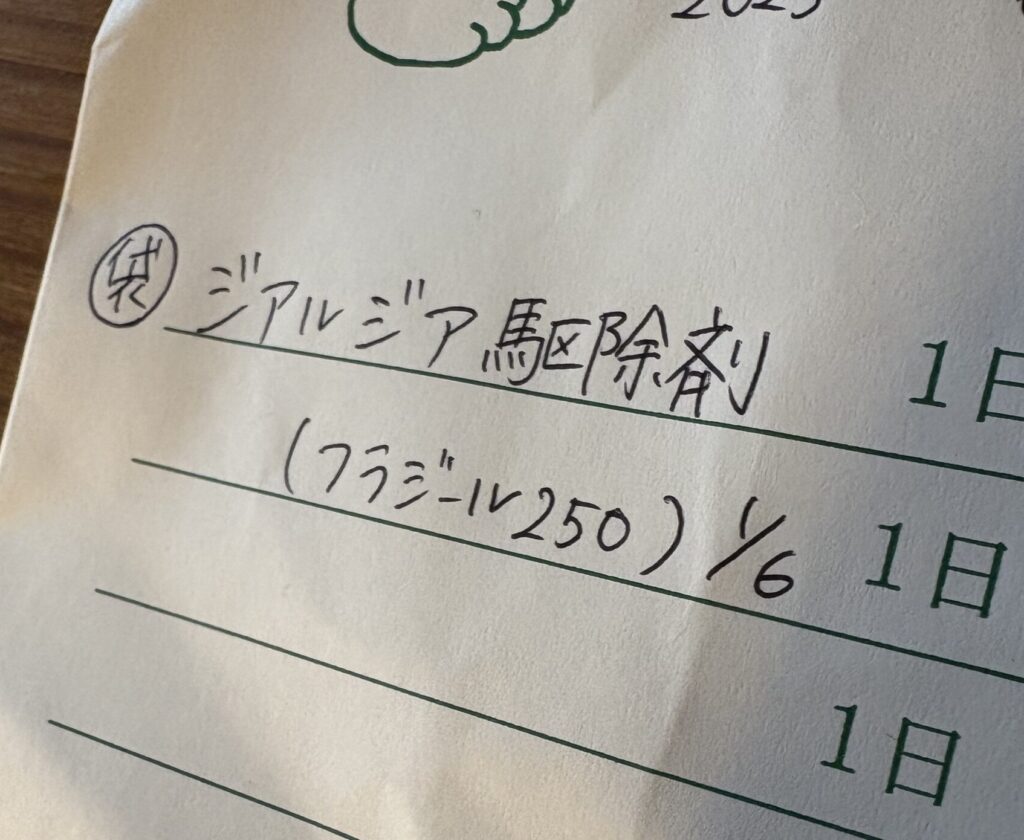 2025
袋 ジアルジア駆除剤 1日
(フラジール250) 1/6 1日
1日